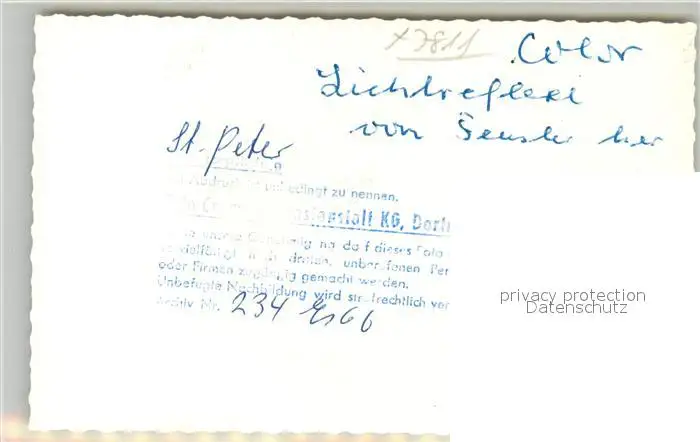 x7811
Color
Lichtreflexi
von Fenster her
St. Peter
Abdruck unbedingt zu nennen.
KG, Dortm
Ohne unsere Genehmig no darf dieses Foto
vervielfältigt noch dritten, unberufenen Per
oder Firmen zugängig gemacht werden.
Unbefugte Nachbildung wird strafrechtlich ver
Archiv Nr. 234
privacy protection
Datenschutz